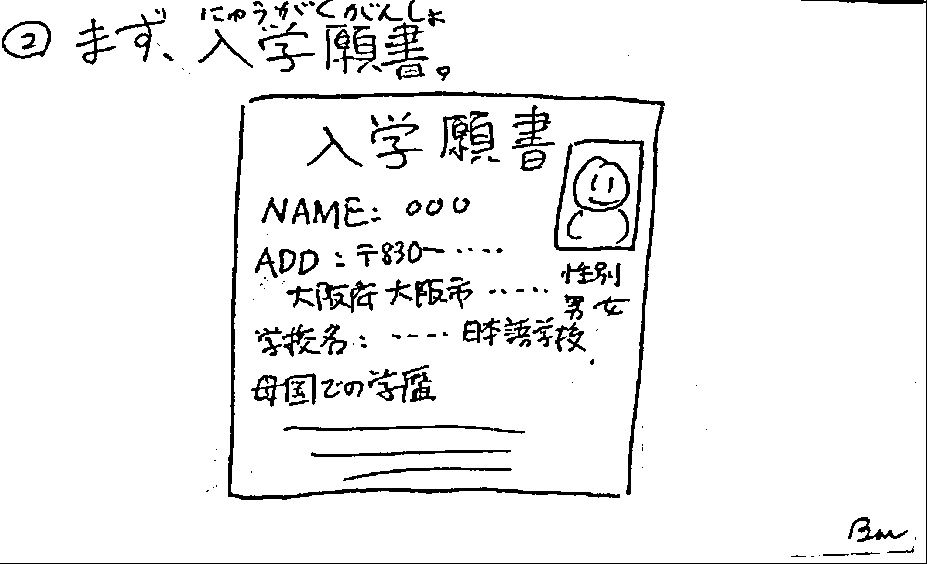 にゅうがくがんしょ
② まず、入学願書。
入学願書
NAME: ○○○
ADD: 〒830~ ‥‥
大阪府大阪市 ‥‥‥
性別
男 女
学校名: ‥‥ 日本語学校
母国での学歴